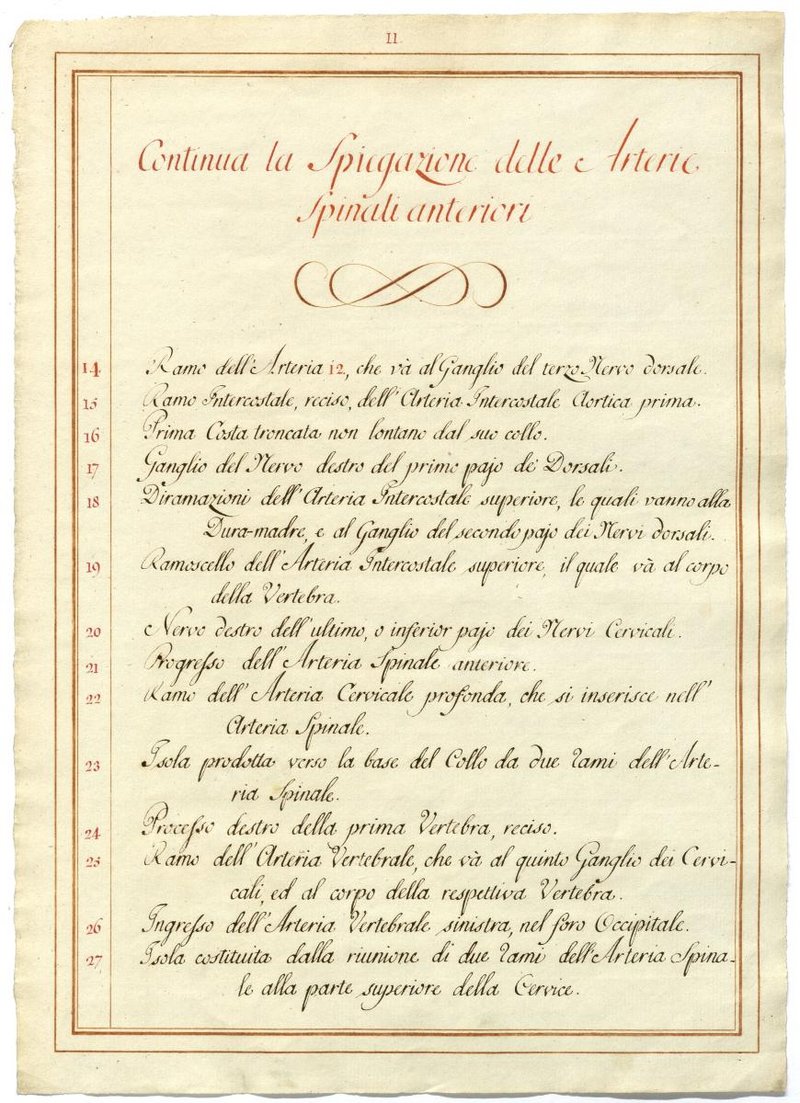 11
Continua la Spiegazione delle Arterie
Spinali anteriori
14 Ramo dell'Arteria 12, che và al Ganglio del terzo Nervo dorsale.
15 Ramo Intercostale, reciso, dell'Arteria Intercostale Aortica prima.
16 Prima Costa troncata non lontano dal suo collo.
17 Ganglio del Nervo destro del primo pajo de' Dorsali.
18 Diramazioni dell'Arteria Intercostale superiore, le quali vanno alla
Dura-madre, e al Ganglio del secondo pajo dei Nervi dorsali.
19 Ramoscello dell'Arteria Intercostale superiore, il quale và al corpo
della Vertebra.
20 Nervo destro dell'ultimo, o inferior pajo dei Nervi Cervicali.
21 Progresso dell'Arteria Spinale anteriore.
22 Ramo dell'Arteria Cervicale profonda, che si inserisce nell'
Arteria Spinale.
23 Isola prodotta verso la base del Collo da due rami dell'Arte-
ria Spinale.
24 Processo destro della prima Vertebra, reciso.
25 Ramo dell'Arteria Vertebrale, che và al quinto Ganglio dei Cervi-
cali, ed al corpo della respettiva Vertebra.
26 Ingresso dell'Arteria Vertebrale sinistra, nel foro Occipitale.
27 Isola costituita dalla riunione di due rami dell'Arteria Spina-
le alla parte superiore della Cervice.